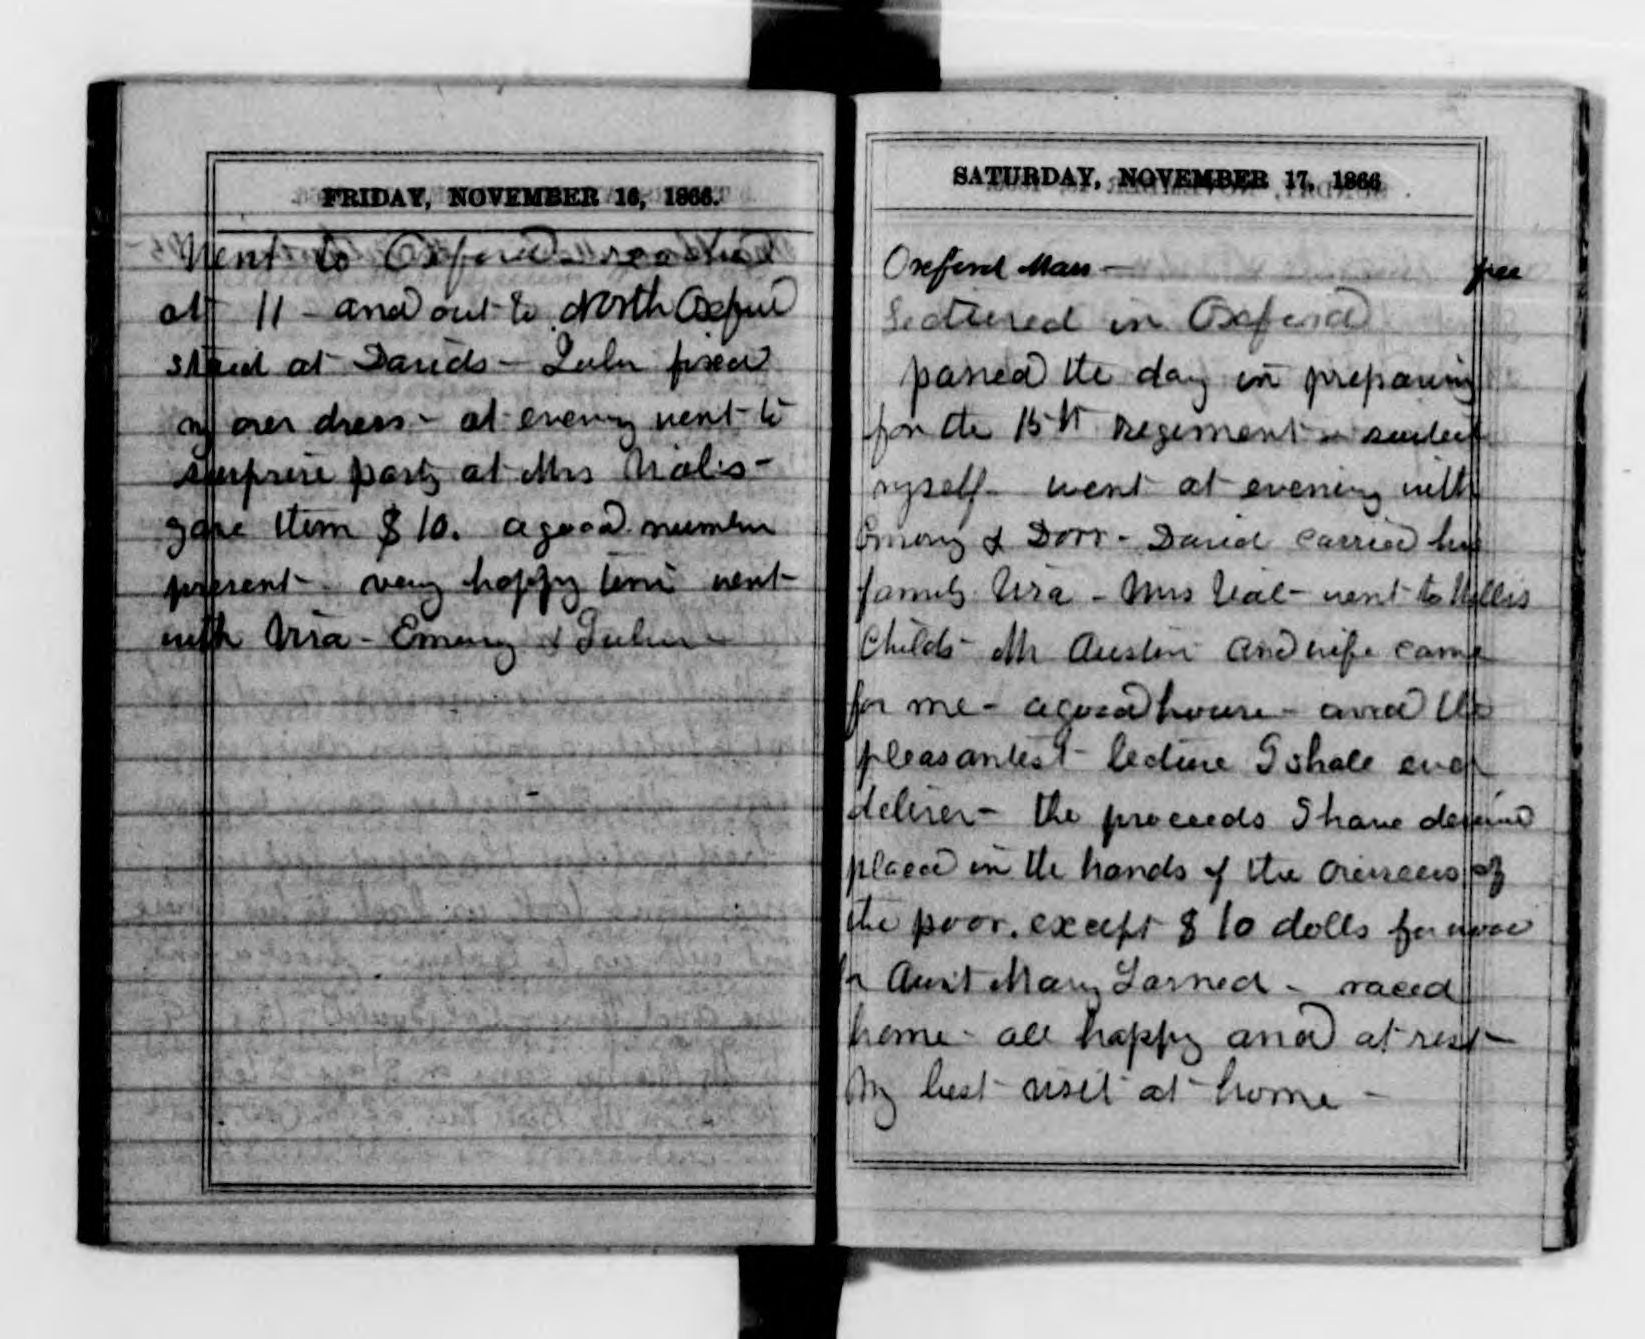 FRIDAY, NOVEMBER 16, 1866.
Went to Oxford - reached
at 11 - and out to North Oxford
staid at Davids - Lulu fixed
my over dress - at evening went to
surprise party at Mrs Vials -
gave them $10. a good number
present - very happy time went
with Vira - Emory &
SATURDAY, NOVEMBER 17, 1866
Oxford Mass - free
Lectured in Oxford
passed the day in preparing
for the 15th Regiment - suited
myself - went at evening with
Emory & Dorr - David carried his
family Vira - Mrs Vial - went to Willis
Childs - Mr Austin and wife came
for me - a good house - and the
pleasantest lecture I shall ever
deliver - the proceeds I have desired
placed in the hands of the overseers of
the poor. except $10 dolls for wood
for Aunt Mary Larned - raced
home - all happy and at rest -
My best visit at home -